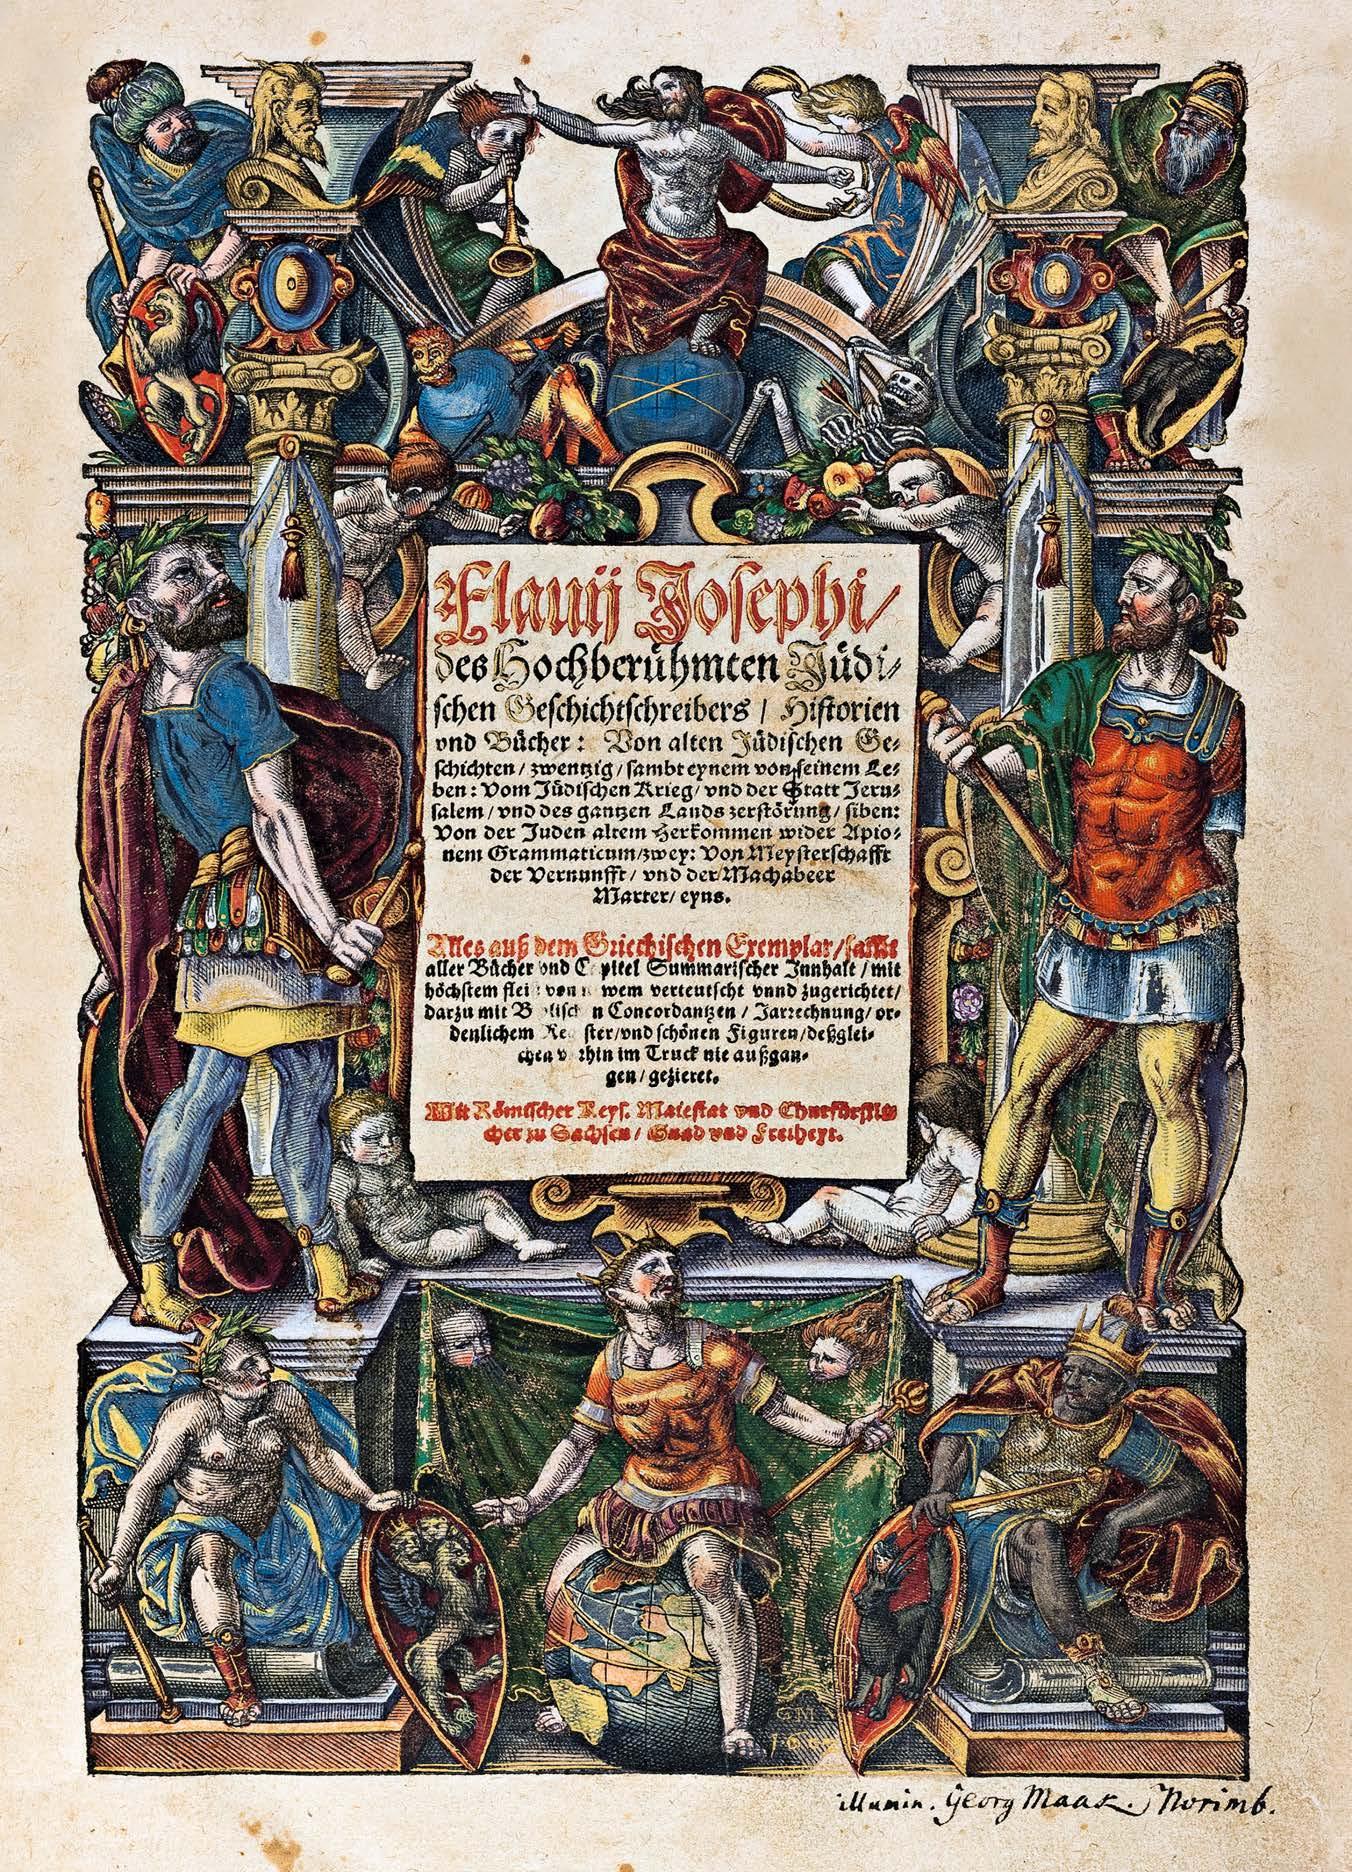 Flauij Josephi/
des Hochberühmten Jüdi-
schen Geschichtschreibers / Historien
vnd Bücher: Von alten Jüdischen Ge-
schichten / zwentzig / sambt eynem von seinem Le-
ben: Vom Jüdischen Krieg / vnd der Statt Jeru-
salem / vnd des gantzen Lands zerstörung / siben:
Von der Juden altem Herkommen wider Apio-
nem Grammaticum / zwey: Von Meysterschafft
der Vernunfft / vnd der Machabeer
Marter / eyns.
Alles auß dem Griechischen Exemplar /
aller Bücher vnd Capitel Summarischer Innhalt / mit
höchstem verteutscht vnnd zugerichtet /
darzu mit Concordantzen / Jarrechnung / or-
denlichem Register / vnd schönen Figuren / deßglei-
chen vorhin im Truck nie außgan-
gen / gezieret.
Mit Römischer Keys. Maiestat vnd Churfürstli-
cher zu Sachsen / Gnad vnd Freiheyt.
GM
illumin. Georg Maak. Norimb.